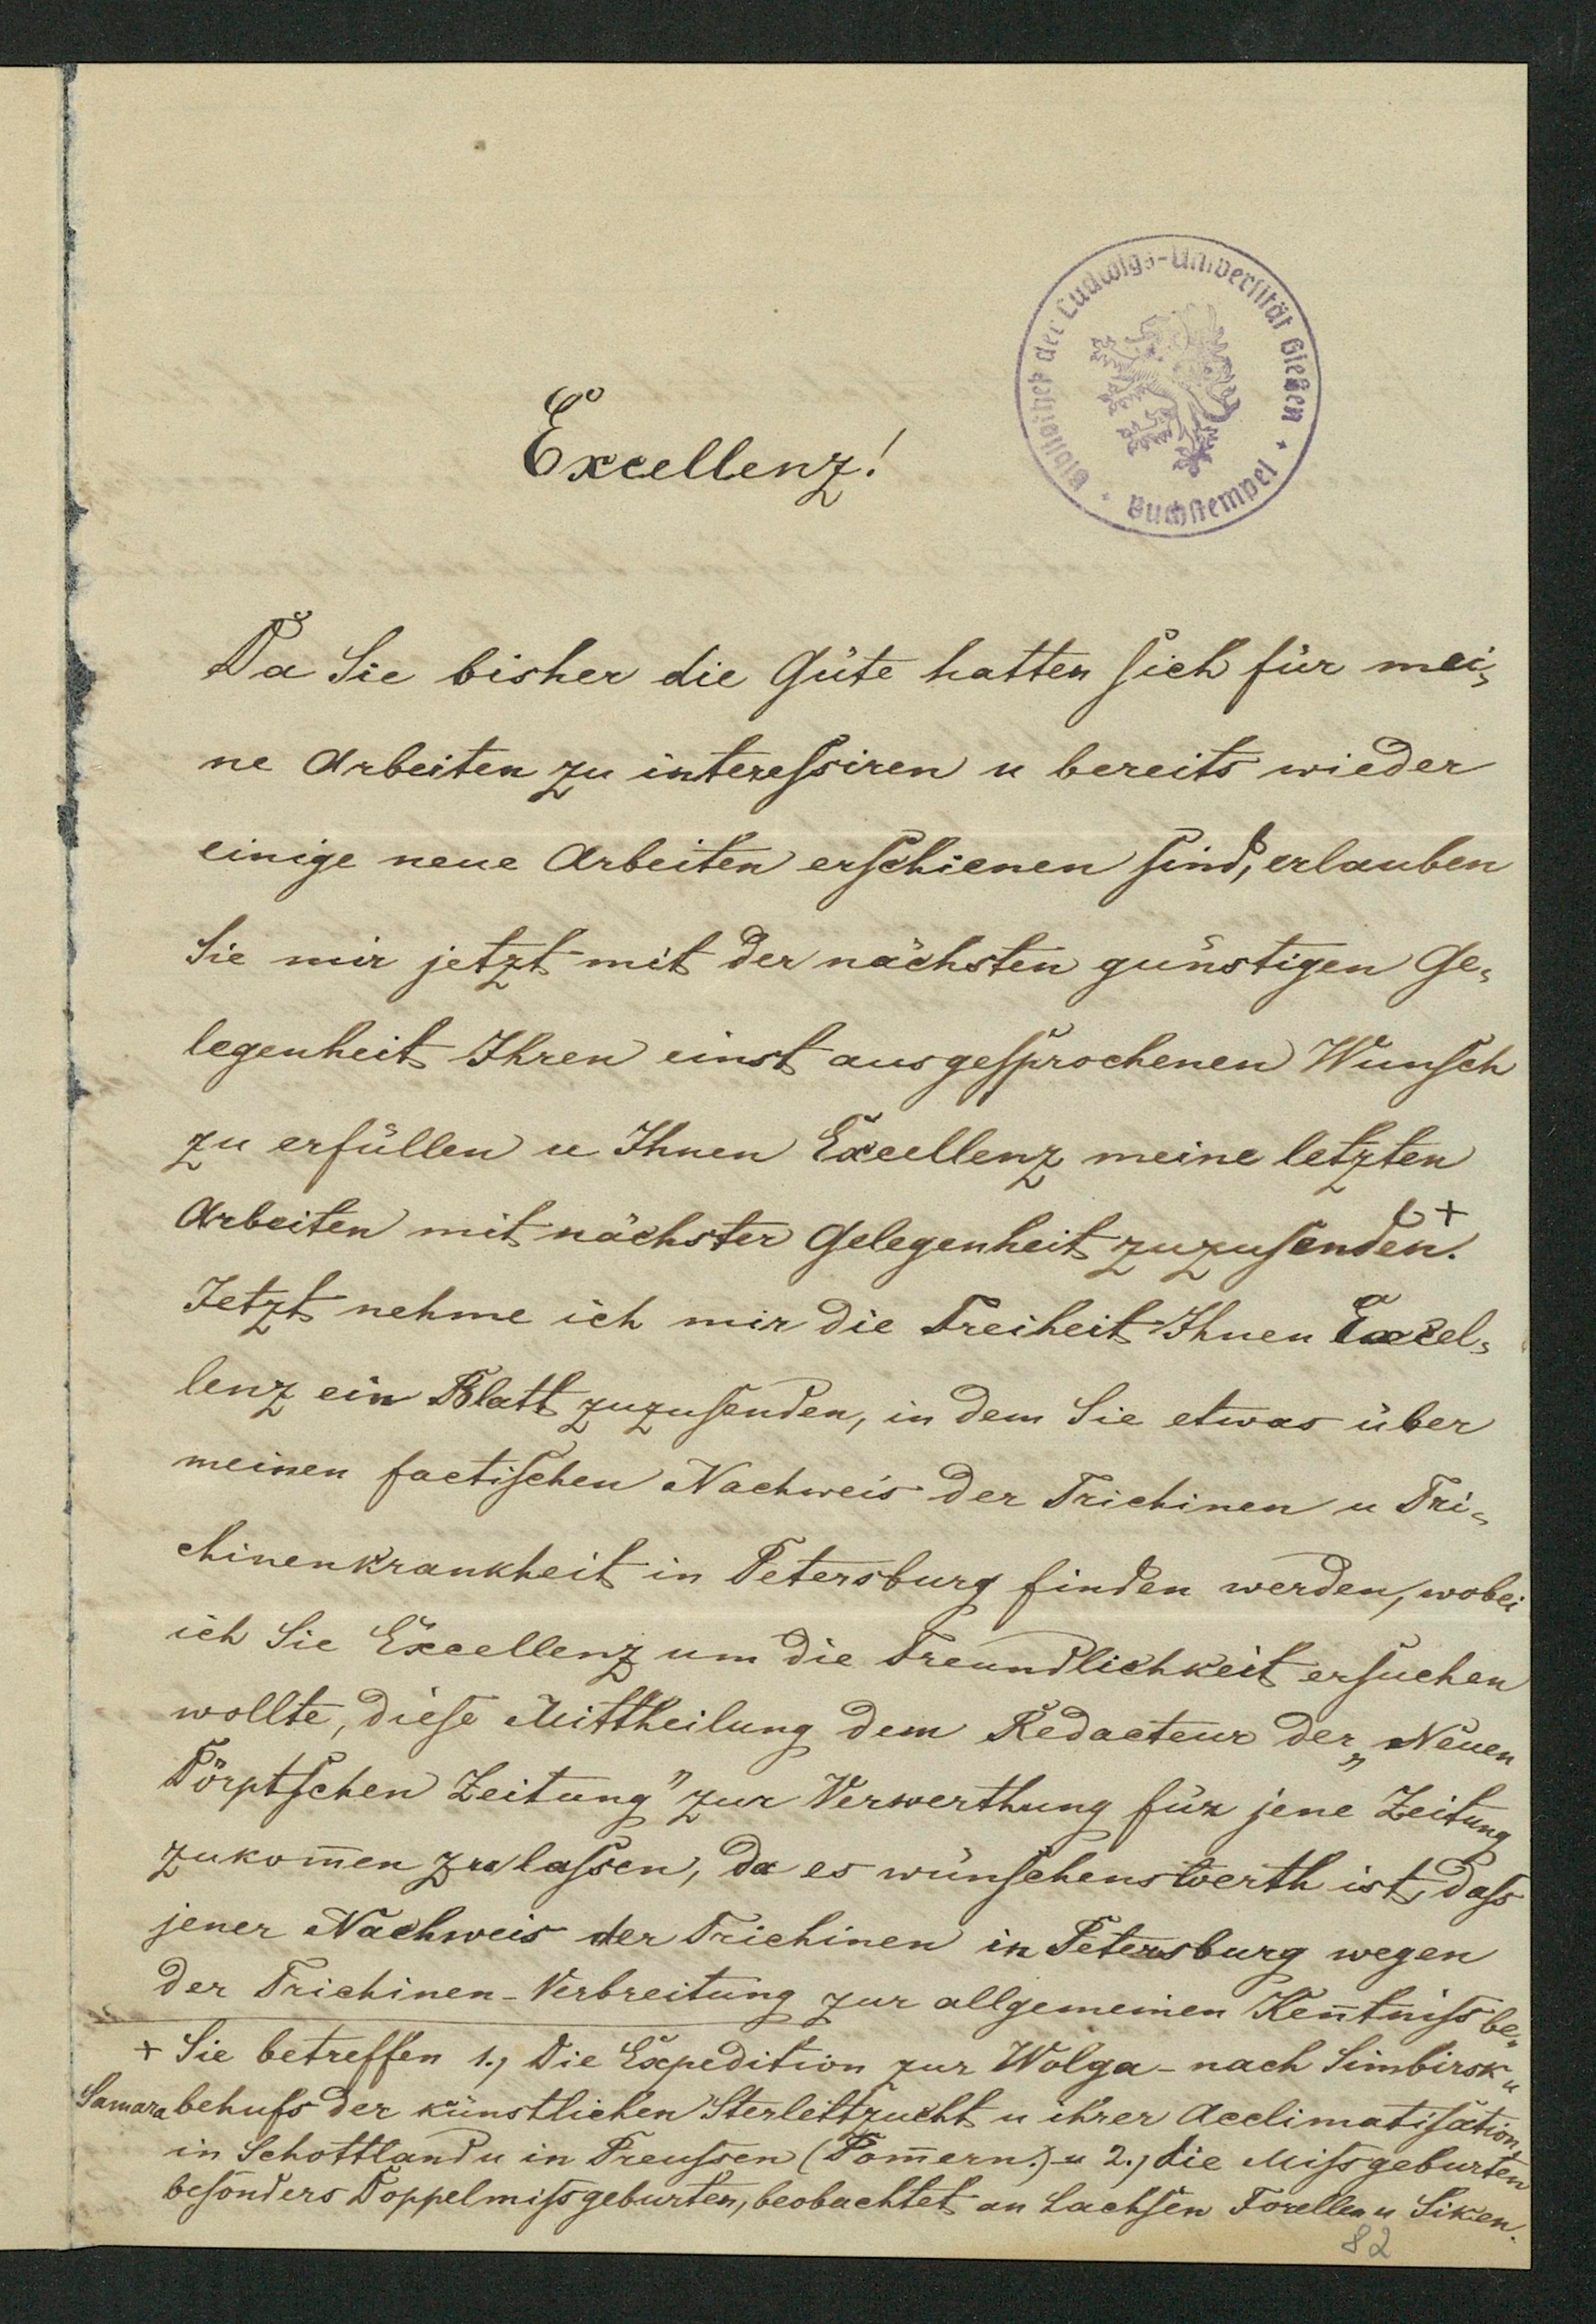 Bibliothek der Ludwigs-Universität Gießen * Buchstempel *
Excellenz!
Da Sie bisher die Güte hatten sich für mei-
ne Arbeiten zu interessiren u bereits wieder
einige neue Arbeiten erschienen sind, erlauben
Sie mir jetzt mit der nächsten günstigen Ge-
legenheit Ihren einst ausgesprochenen Wunsch
zu erfüllen u Ihnen Excellenz meine letzten
Arbeiten mit nächster Gelegenheit zuzusenden.+
Jetzt nehme ich mir die Freiheit Ihnen Excel-
lenz ein Blatt zuzusenden, in dem Sie etwas über
meinen factischen Nachweis der Trichinen u Tri-
chinenkrankheit in Petersburg finden werden, wobei
ich Sie Excellenz um die Freundlichkeit ersuchen
wollte, diese Mittheilung dem Redacteur der „Neuen
Dörptschen Zeitung" zur Verwerthung für jene Zeitung
zukom̅en zu lassen, da es wünschenswerth ist, dass
jener Nachweis der Trichinen in Petersburg wegen
der Trichinen-Verbreitung zur allgemeinen Ken̅tniss be-
+ Sie betreffen 1., Die Expedition zur Wolga - nach Simbirsk u
Samara behufs der künstlichen Sterlettzucht u ihrer Acclimatisation
in Schottland u in Preussen (Pom̅ern.) u 2., die Missgeburten
besonders Doppelmissgeburten, beobachtet an Lachsen Forellen u Siken.
82